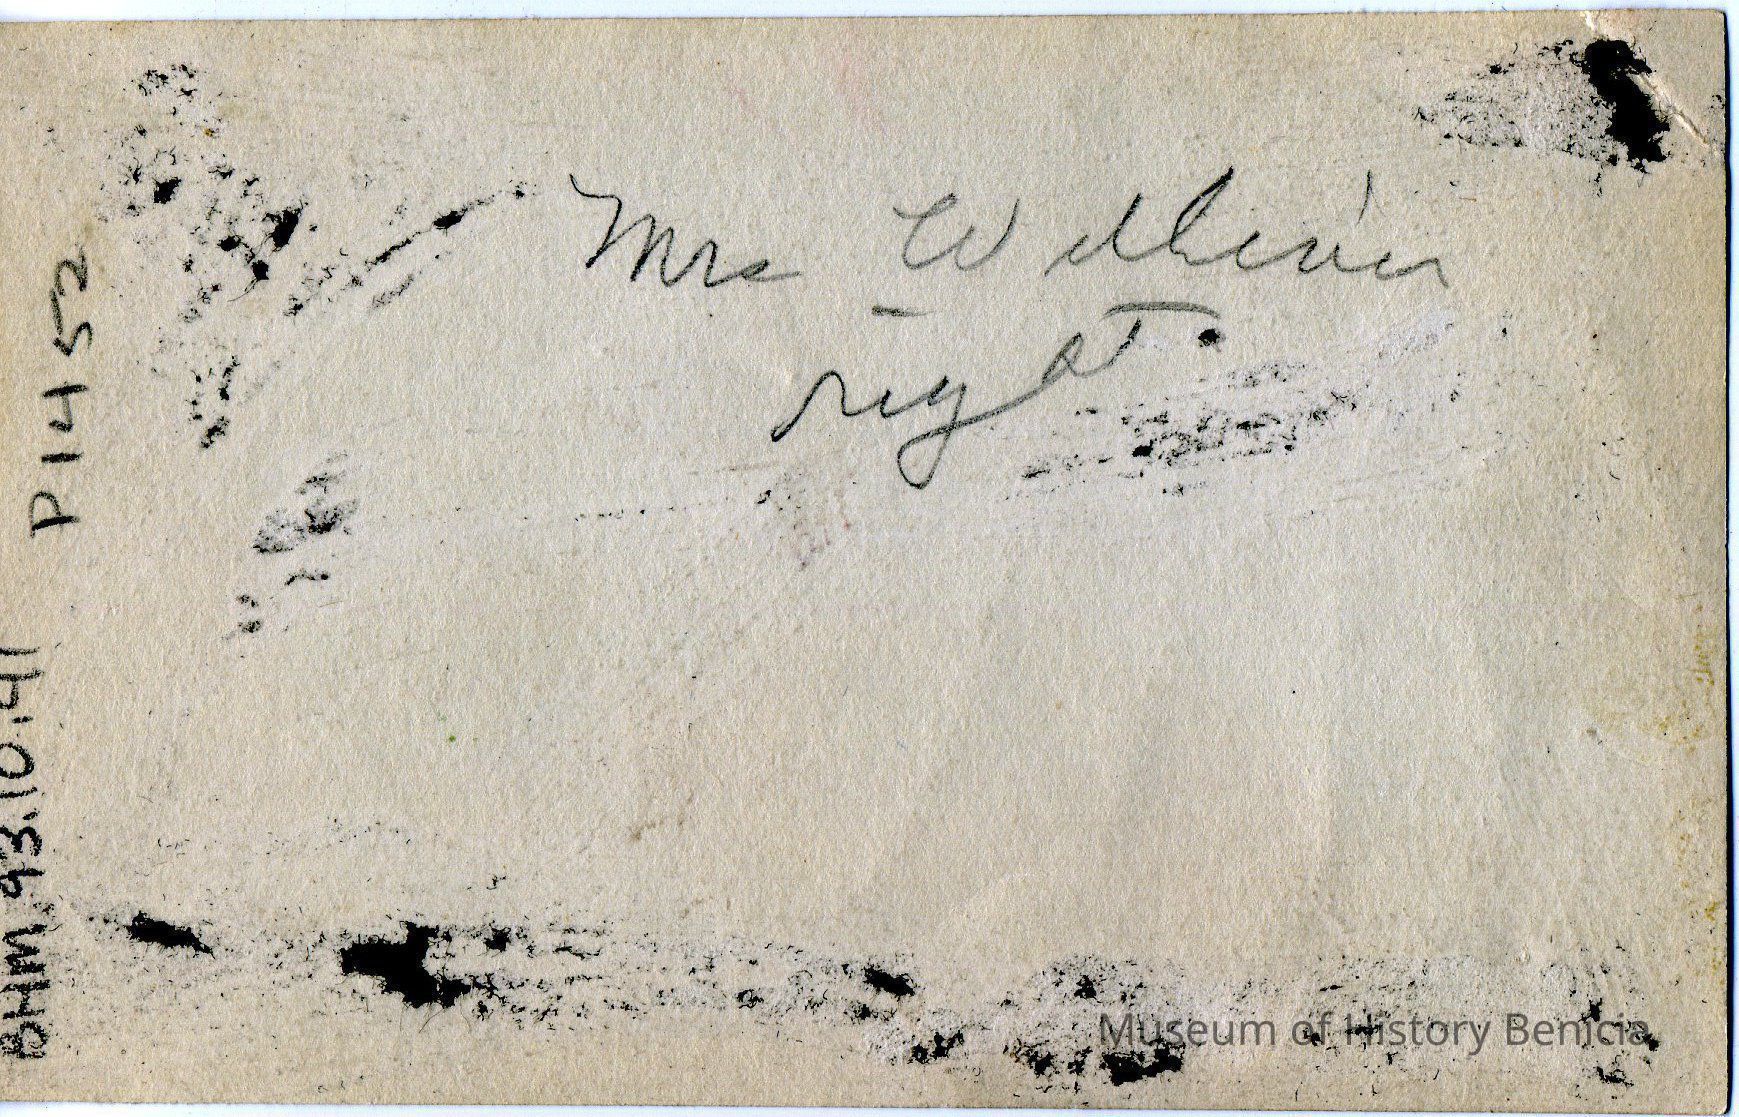 Mrs
right
P1452
BHM 93.10.41
Museum of History Benicia